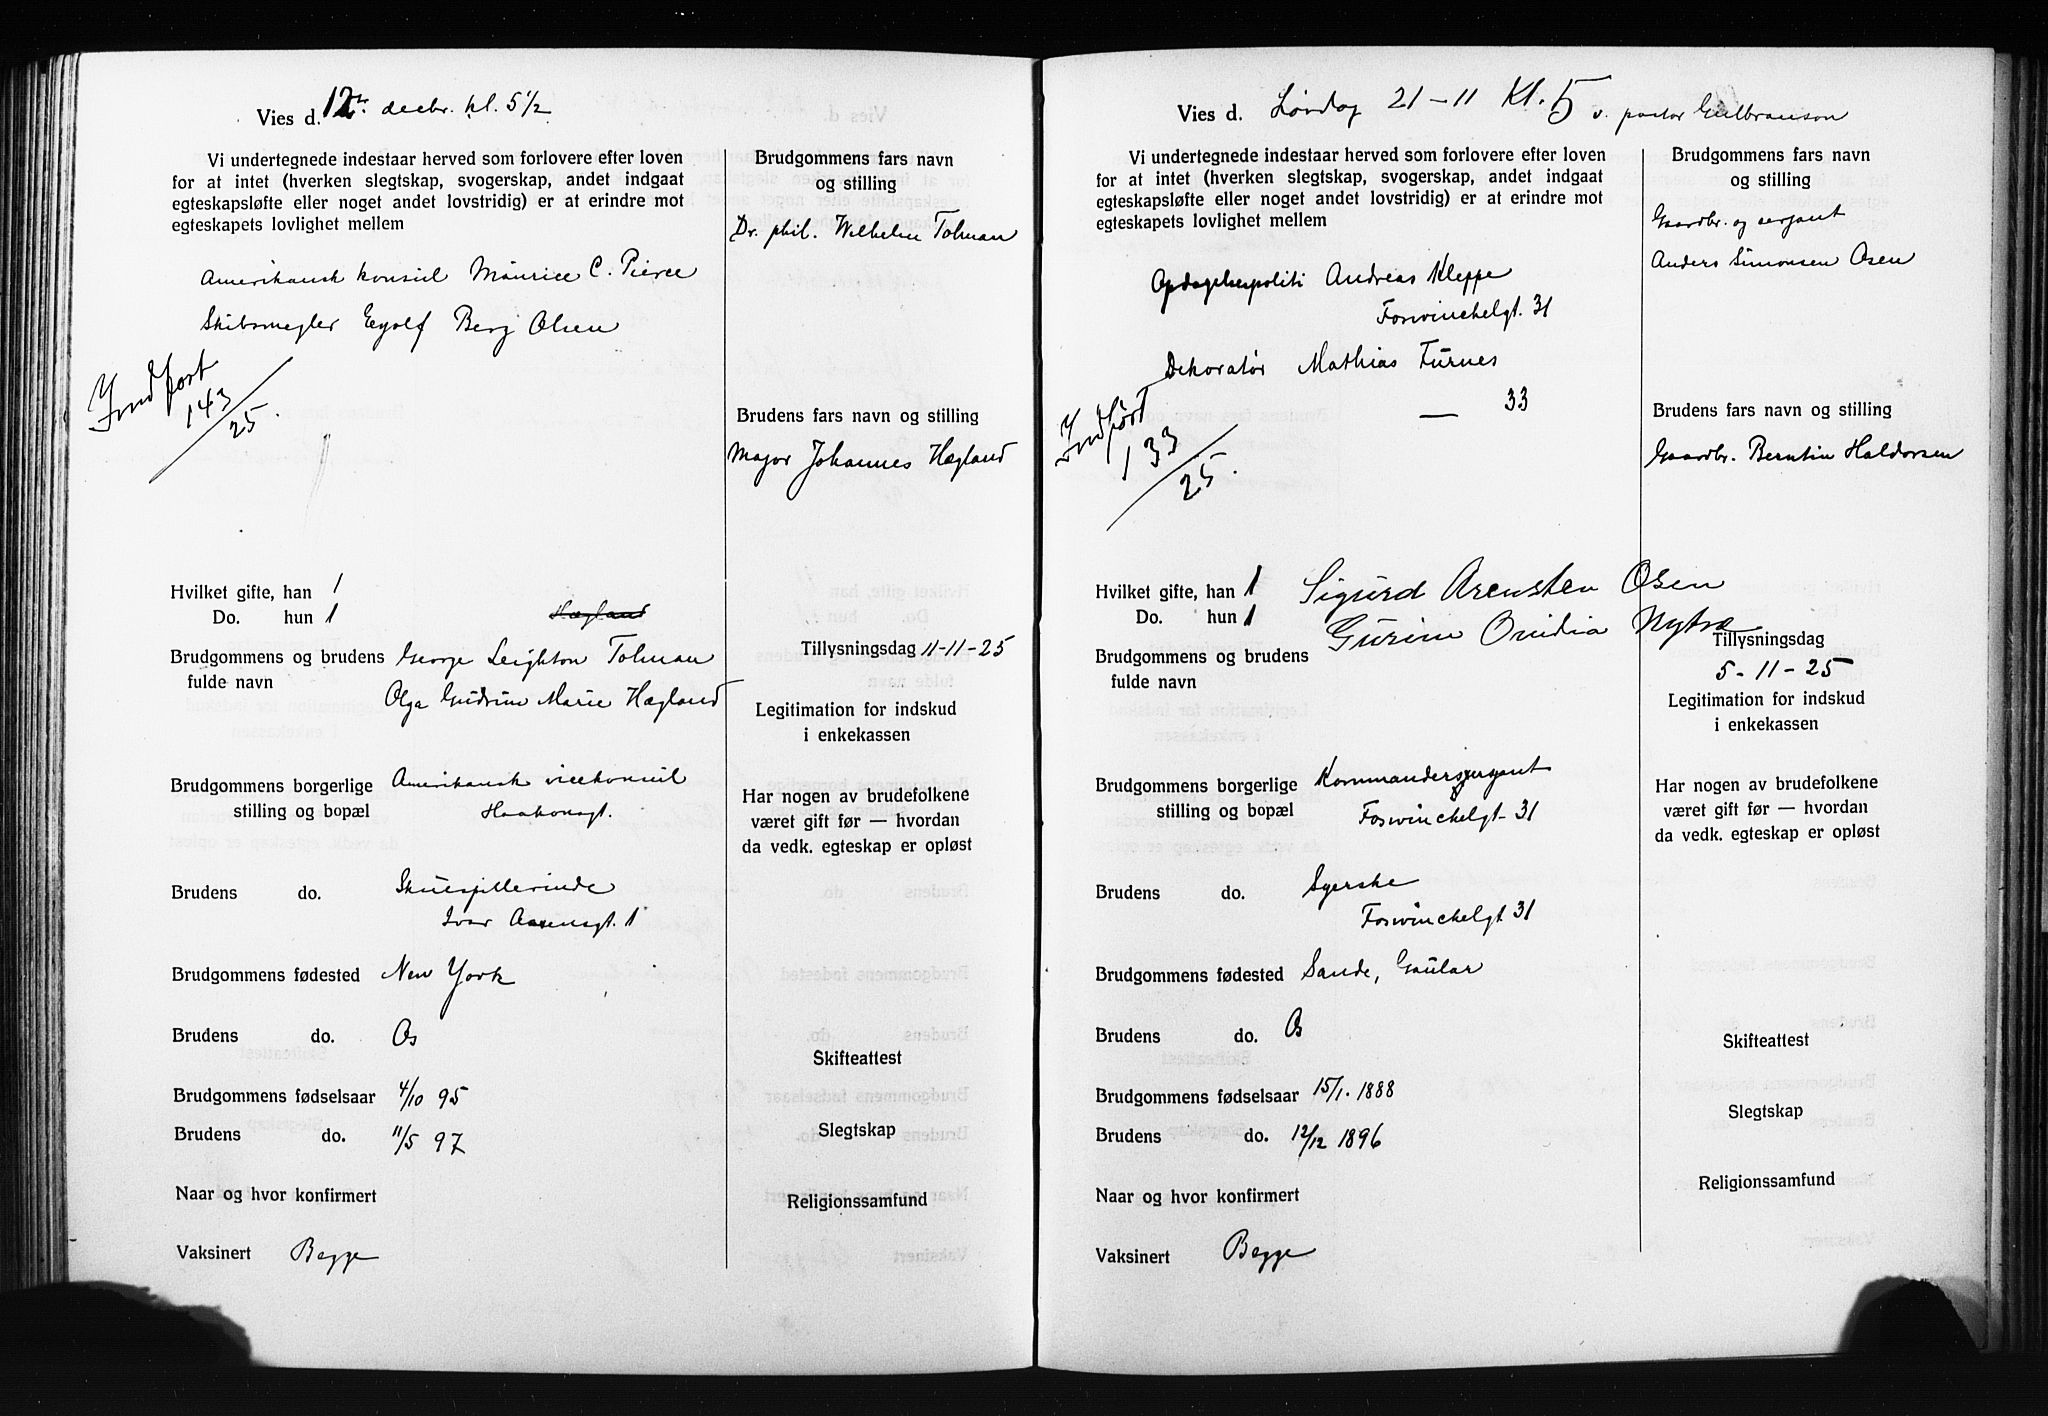 Vies d. 12te decbr. kl. 5 1/2
Vi undertegnede indestaar herved som forlovere efter loven
for at intet (hverken slegtskap, svogerskap, andet indgaat
egteskapsløfte eller noget andet lovstridig) er at erindre mot
egteskapets lovlighet mellem
Amerikansk konsul Maurice C. Pierce
Skibsmegler Eyolf Berg Olsen
Indført
143/25.
Hvilket gifte, han 1
Do. hun 1
Hægland
Brudgommens og brudens George Leighton Tolman
fulde navn Olga Gudrun Marie Hægland
Brudgommens borgerlige Amerikansk vicekonsul
stilling og bopæl Haakonsgt.
Brudens do. Skuespillerinde
Ivar Aasensgt. 1
Brudgommens fødested New York
Brudens do. Os
Brudgommens fødselsaar 4/10 95
Brudens do. 11/5 97
Naar og hvor konfirmert
Vaksinert Begge
Brudgommens fars navn
og stilling
Dr. phil. Wilhelm Tolman
Brudens fars navn og stilling
Major Johannes Hægland
Tillysningsdag 11-11-25
Legitimation for indskud
i enkekassen
Har nogen av brudefolkene
været gift før — hvordan
da vedk. egteskap er opløst
Skifteattest
Slegtskap
Religionssamfund
Vies d. Lørdag 21-11 Kl. 5 v. pastor Gulbranson
Vi undertegnede indestaar herved som forlovere efter loven
for at intet (hverken slegtskap, svogerskap, andet indgaat
egteskapsløfte eller noget andet lovstridig) er at erindre mot
egteskapets lovlighet mellem
Opdagelsespoliti Andreas Kleppe
Foswinckelgt. 31
Dekoratør Mathias Furnes
— 33
Indført
133/25.
Hvilket gifte, han 1 Sigurd Arensten Osen
Do. hun 1 Gurine Ovidia Nytræ
Brudgommens og brudens
fulde navn
Brudgommens borgerlige Kommandersergant
stilling og bopæl Foswinckelgt 31
Brudens do. Syerske
Foswinckelgt 31
Brudgommens fødested Sande, Gaular
Brudens do. Os
Brudgommens fødselsaar 15/1. 1888
Brudens do. 12/12 1896
Naar og hvor konfirmert
Vaksinert Begge
Brudgommens fars navn
og stilling
Gaardbr. og serjant
Anders Simonsen Osen
Brudens fars navn og stilling
Gaardbr. Berntin Haldorsen
Tillysningsdag
5-11-25
Legitimation for indskud
i enkekassen
Har nogen av brudefolkene
været gift før — hvordan
da vedk. egteskap er opløst
Skifteattest
Slegtskap
Religionssamfund